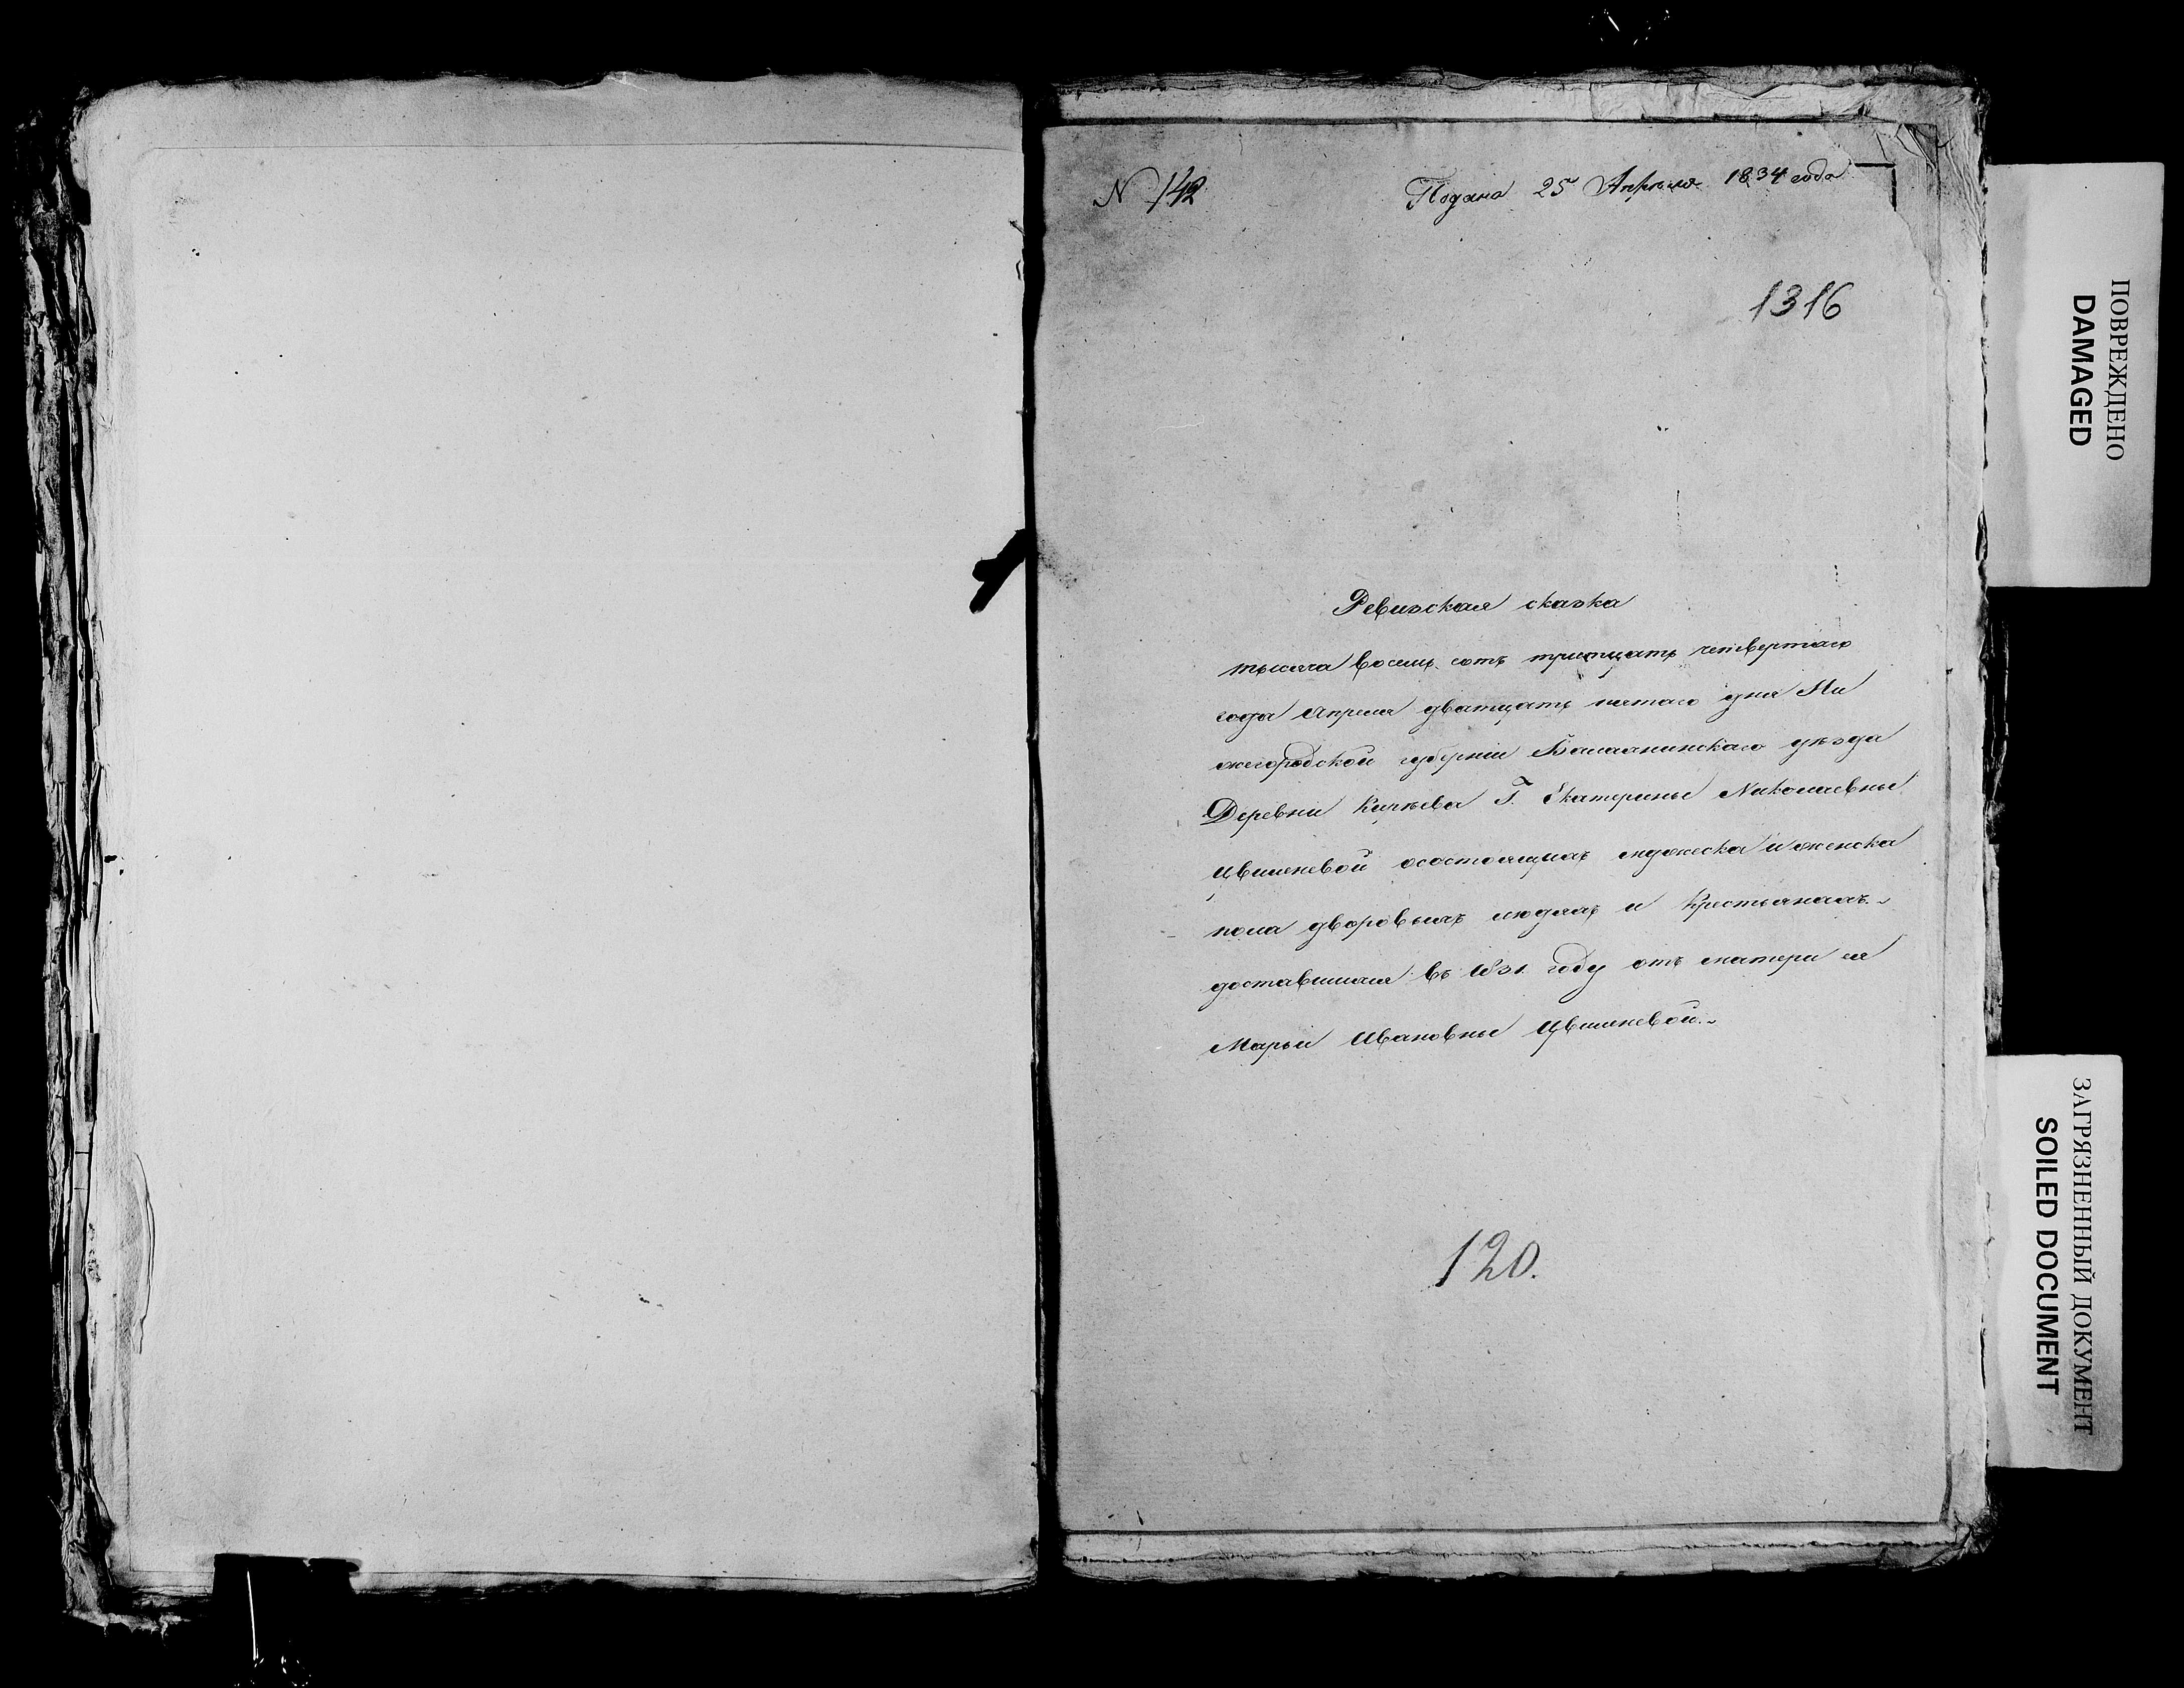 N 142
Подана 25 Апреля 1834 года
1316
Ревизская сказка
тысяча восемь сотъ тритцать четвертаго
года Апреля дватцать пятаго дня Ни
жегородской губернии Балахнинскаго уѣзда
Деревни Г. Екатерины Николаевны
осостоящихъ мужеска и женска
пола дворовыхъ людяхъ и крестьянахъ.
доставшихся въ 1831. году отъ матери ея
Марьи Ивановны
120.
ПОВРЕЖДЕНО
DAMAGED
ЗАГРЯЗНЕННЫЙ ДОКУМЕНТ
SOILED DOCUMENT